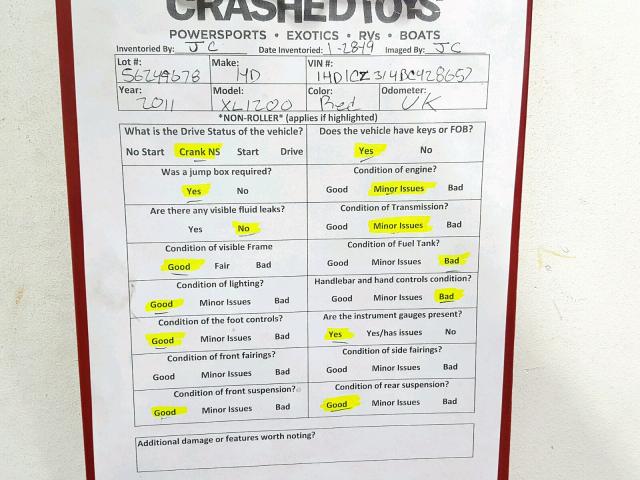 CRASHEDTOYS
POWERSPORTS • EXOTICS • RVs • BOATS
Inventoried By: JC Date Inventoried: 1-28-19 Imaged By: JC
Lot #: Make: VIN #:
56249678 HD 1HD1CZ314BC428657
Year: Model: Color: Odometer:
2011 XL1200 Red UK
*NON-ROLLER* (applies if highlighted)
What is the Drive Status of the vehicle? Does the vehicle have keys or FOB?
No Start Crank NS Start Drive Yes No
Was a jump box required? Condition of engine?
Yes No Good Minor Issues Bad
Are there any visible fluid leaks? Condition of Transmission?
Yes No Good Minor Issues Bad
Condition of visible Frame Condition of Fuel Tank?
Good Fair Bad Good Minor Issues Bad
Condition of lighting? Handlebar and hand controls condition?
Good Minor Issues Bad Good Minor Issues Bad
Condition of the foot controls? Are the instrument gauges present?
Good Minor Issues Bad Yes Yes/has issues No
Condition of front fairings? Condition of side fairings?
Good Minor Issues Bad Good Minor Issues Bad
Condition of front suspension? Condition of rear suspension?
Good Minor Issues Bad Good Minor Issues Bad
Additional damage or features worth noting?